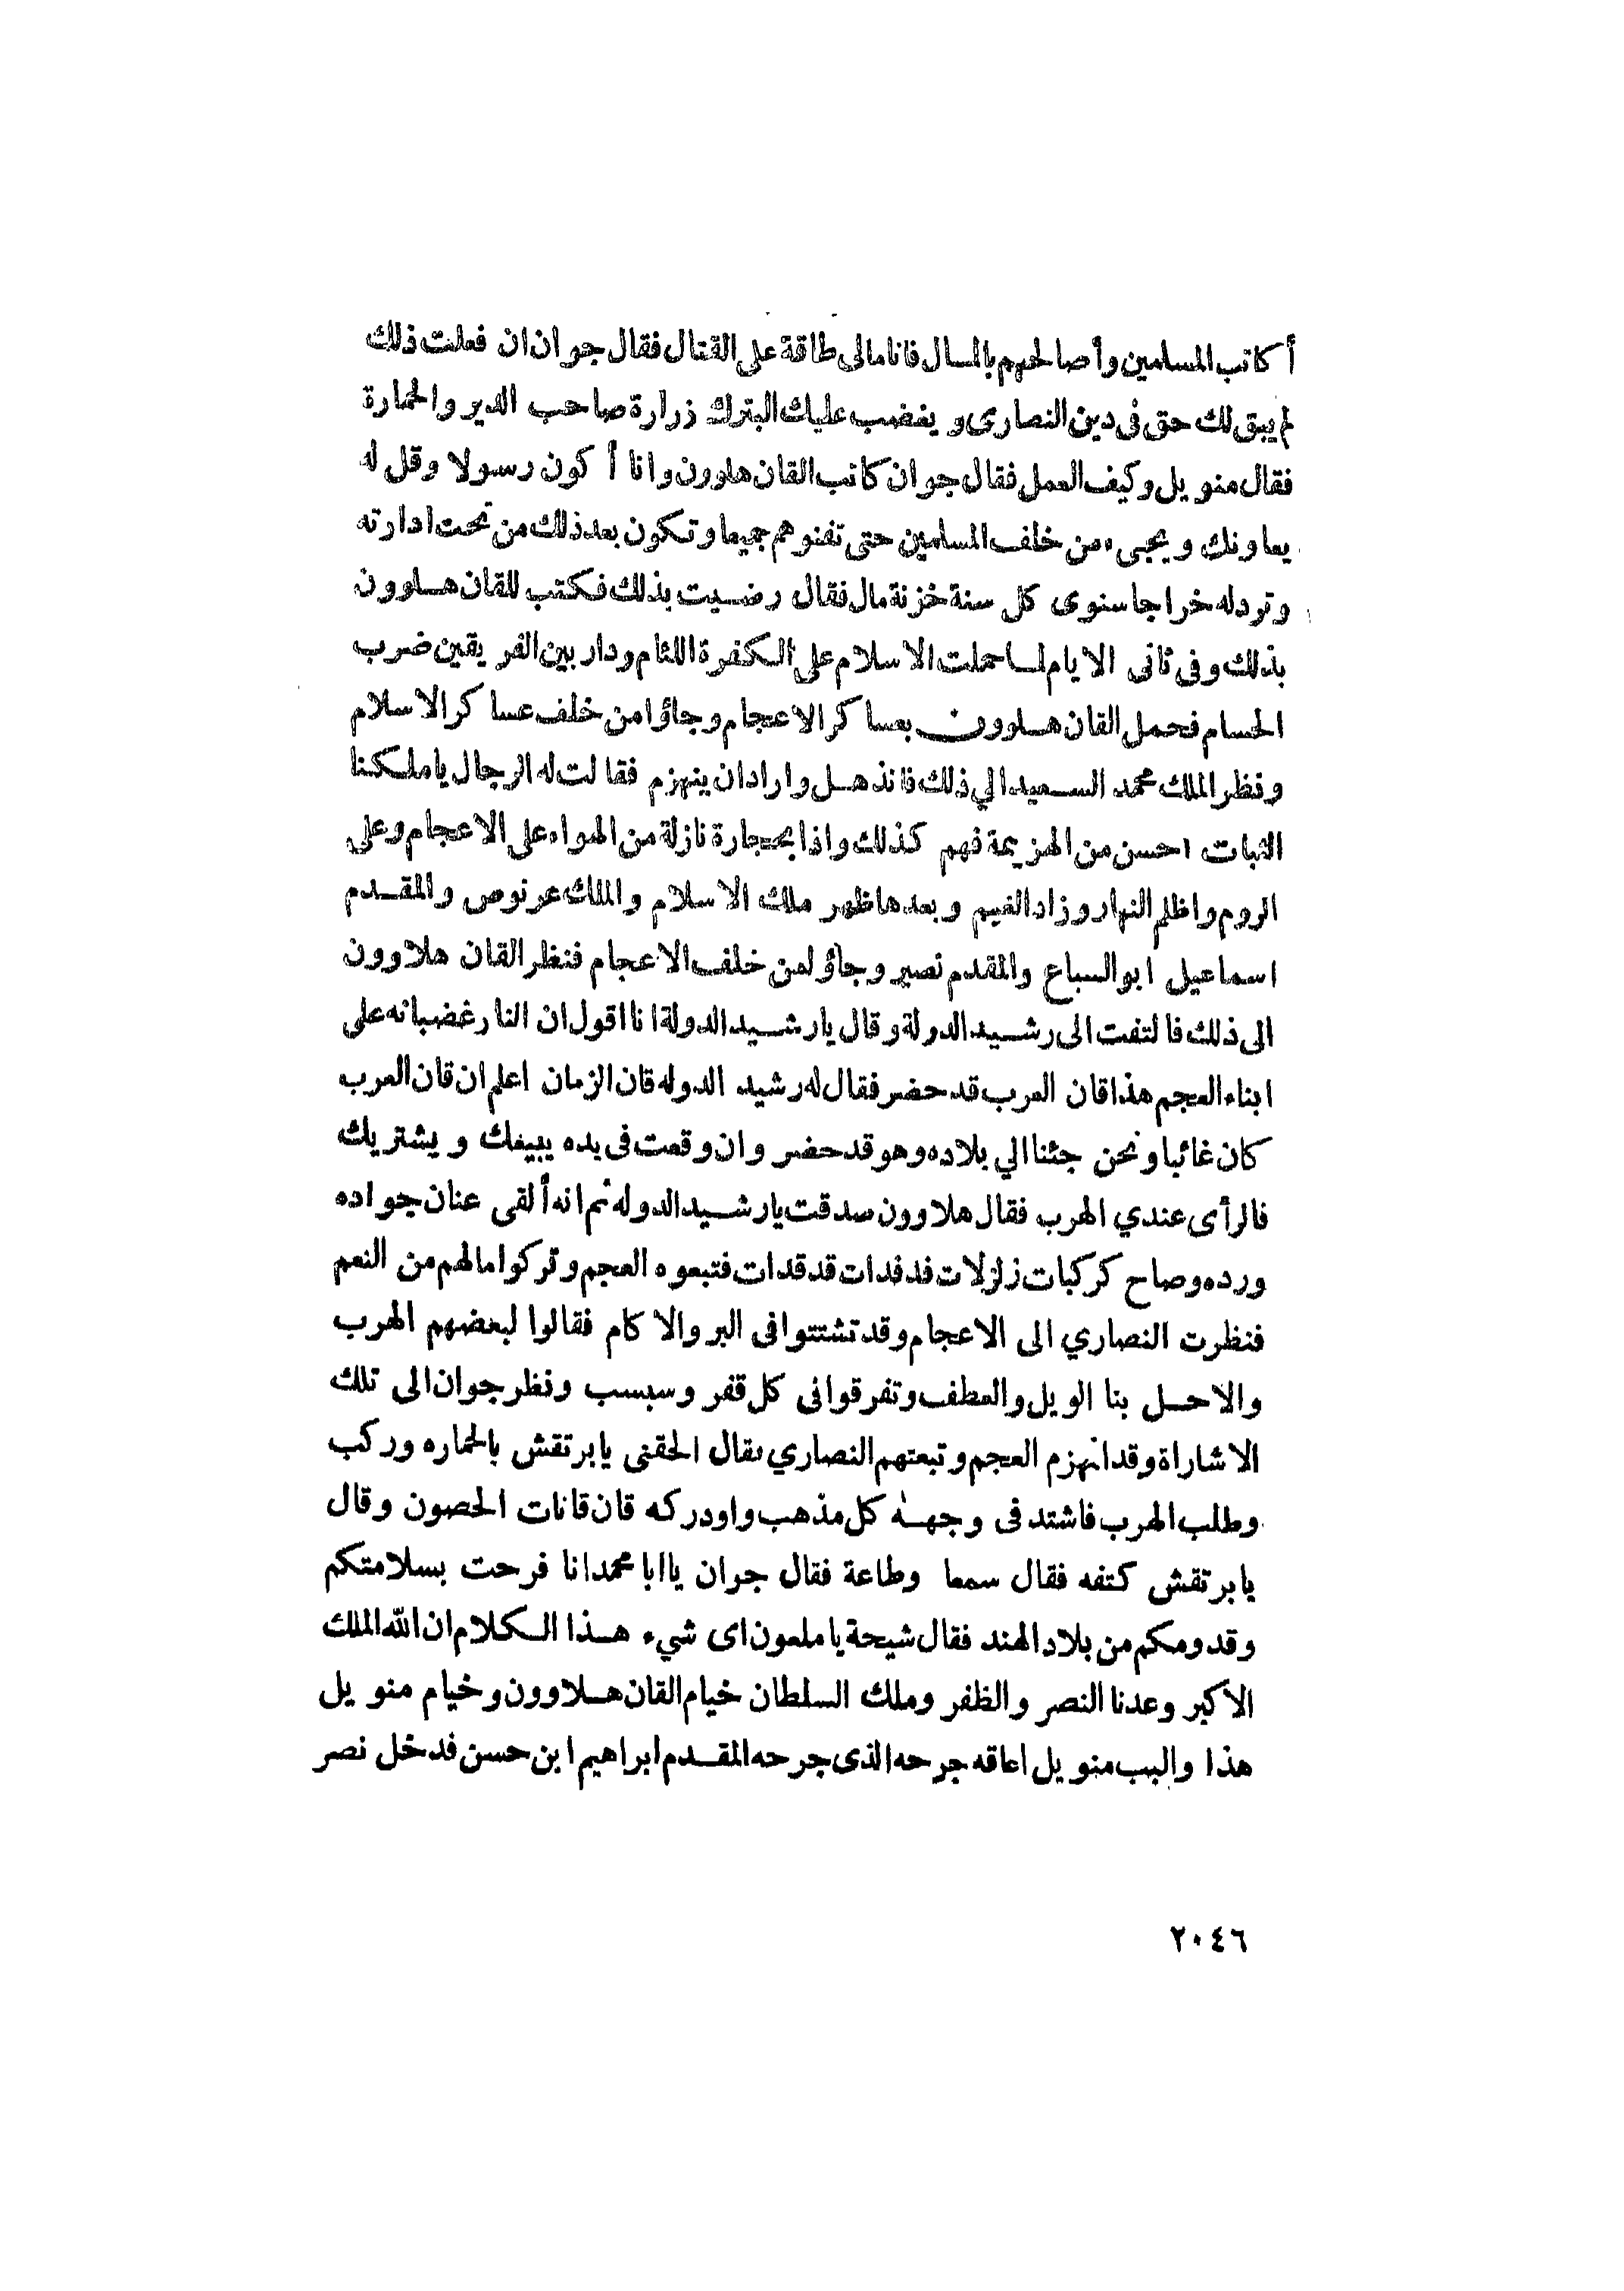 أكاتب المسلمين وأصالحهم بالمال فانا مالى طاقة على القتال فقال جوان ان فعلت ذلك
لم يبق لك حق فى دين النصارى ويغضب عليك البترك زرارة صاحب الدير والحمارة
فقال منويل وكيف العمل فقال جوان كاتب القان هلوون وانا أكون رسولا وقل له
يعاونك ويجىء من خلف المسلمين حتى تفنوهم جميعا وتكون بعد ذلك من تحت ادارته
وتردله خراجا سنوى كل سنة خزنة مال فقال رضيت بذلك فكتب للقان هلوون
بذلك وفى ثانى الايام لما حملت الاسلام على الكفرة اللئام ودار بين الفريقين ضرب
الحسام فحمل القان هلوون بعساكر الاعجام وجاؤا من خلف عساكر الاسلام
ونظر الملك محمد السعيد الي ذلك فانذهل واراد ان ينهزم فقالت له الرجال ياملكنا
الثبات احسن من الهزيمة فهم كذلك واذا بحجارة نازلة من الهواء على الاعجام وعلى
الروم واظلم النهار وزاد الغيم وبعدها ظهر ملك الاسلام والملك عرنوص والمقدم
اسماعيل ابو السباع والمقدم نصير وجاؤ لمن خلف الاعجام فنظر القان هلاوون
الى ذلك فالتفت الى رشيد الدولة وقال يارشيد الدولة انا اقول ان النار غضبانه على
ابناء العجم هذا قان العرب قد حضر فقال له رشيد الدوله قان الزمان اعلم ان قان العرب
كان غائبا ونحن جئنا الي بلاده وهو قد حضر وان وقعت فى يده يبيعك ويشتريك
فالرأى عندي الهرب فقال هلاوون صدقت يارشيد الدوله ثم انه ألقى عنان جواده
ورده وصاح كركبات زلزلات فدفدات قدقدات فتبعوه العجم وتركوا مالهم من النعم
فنظرت النصاري الى الاعجام وقد تشتتوا فى البر والاكام فقالوا لبعضهم الهرب
والاحل بنا الويل والعطف وتفرقوا فى كل قفر وسبسب ونظر جوان الى تلك
الاشاراة وقد انهزم العجم وتبعتهم النصاري فقال الحقنى يابرتقش بالحماره وركب
وطلب الهرب فاشتد فى وجهه كل مذهب واودركه قان قانات الحصون وقال
يابرتقش كتفه فقال سمعا وطاعة فقال جوان ياابا محمد انا فرحت بسلامتكم
وقدومكم من بلاد الهند فقال شيحة ياملعون اى شيء هذا الكلام ان الله الملك
الاكبر وعدنا النصر والظفر وملك السلطان خيام القان هلاوون وخيام منويل
هذا والبب منويل اعاقه جرحه الذى جرحه المقدم ابراهيم ابن حسن فدخل نصر
٢٠٤٦